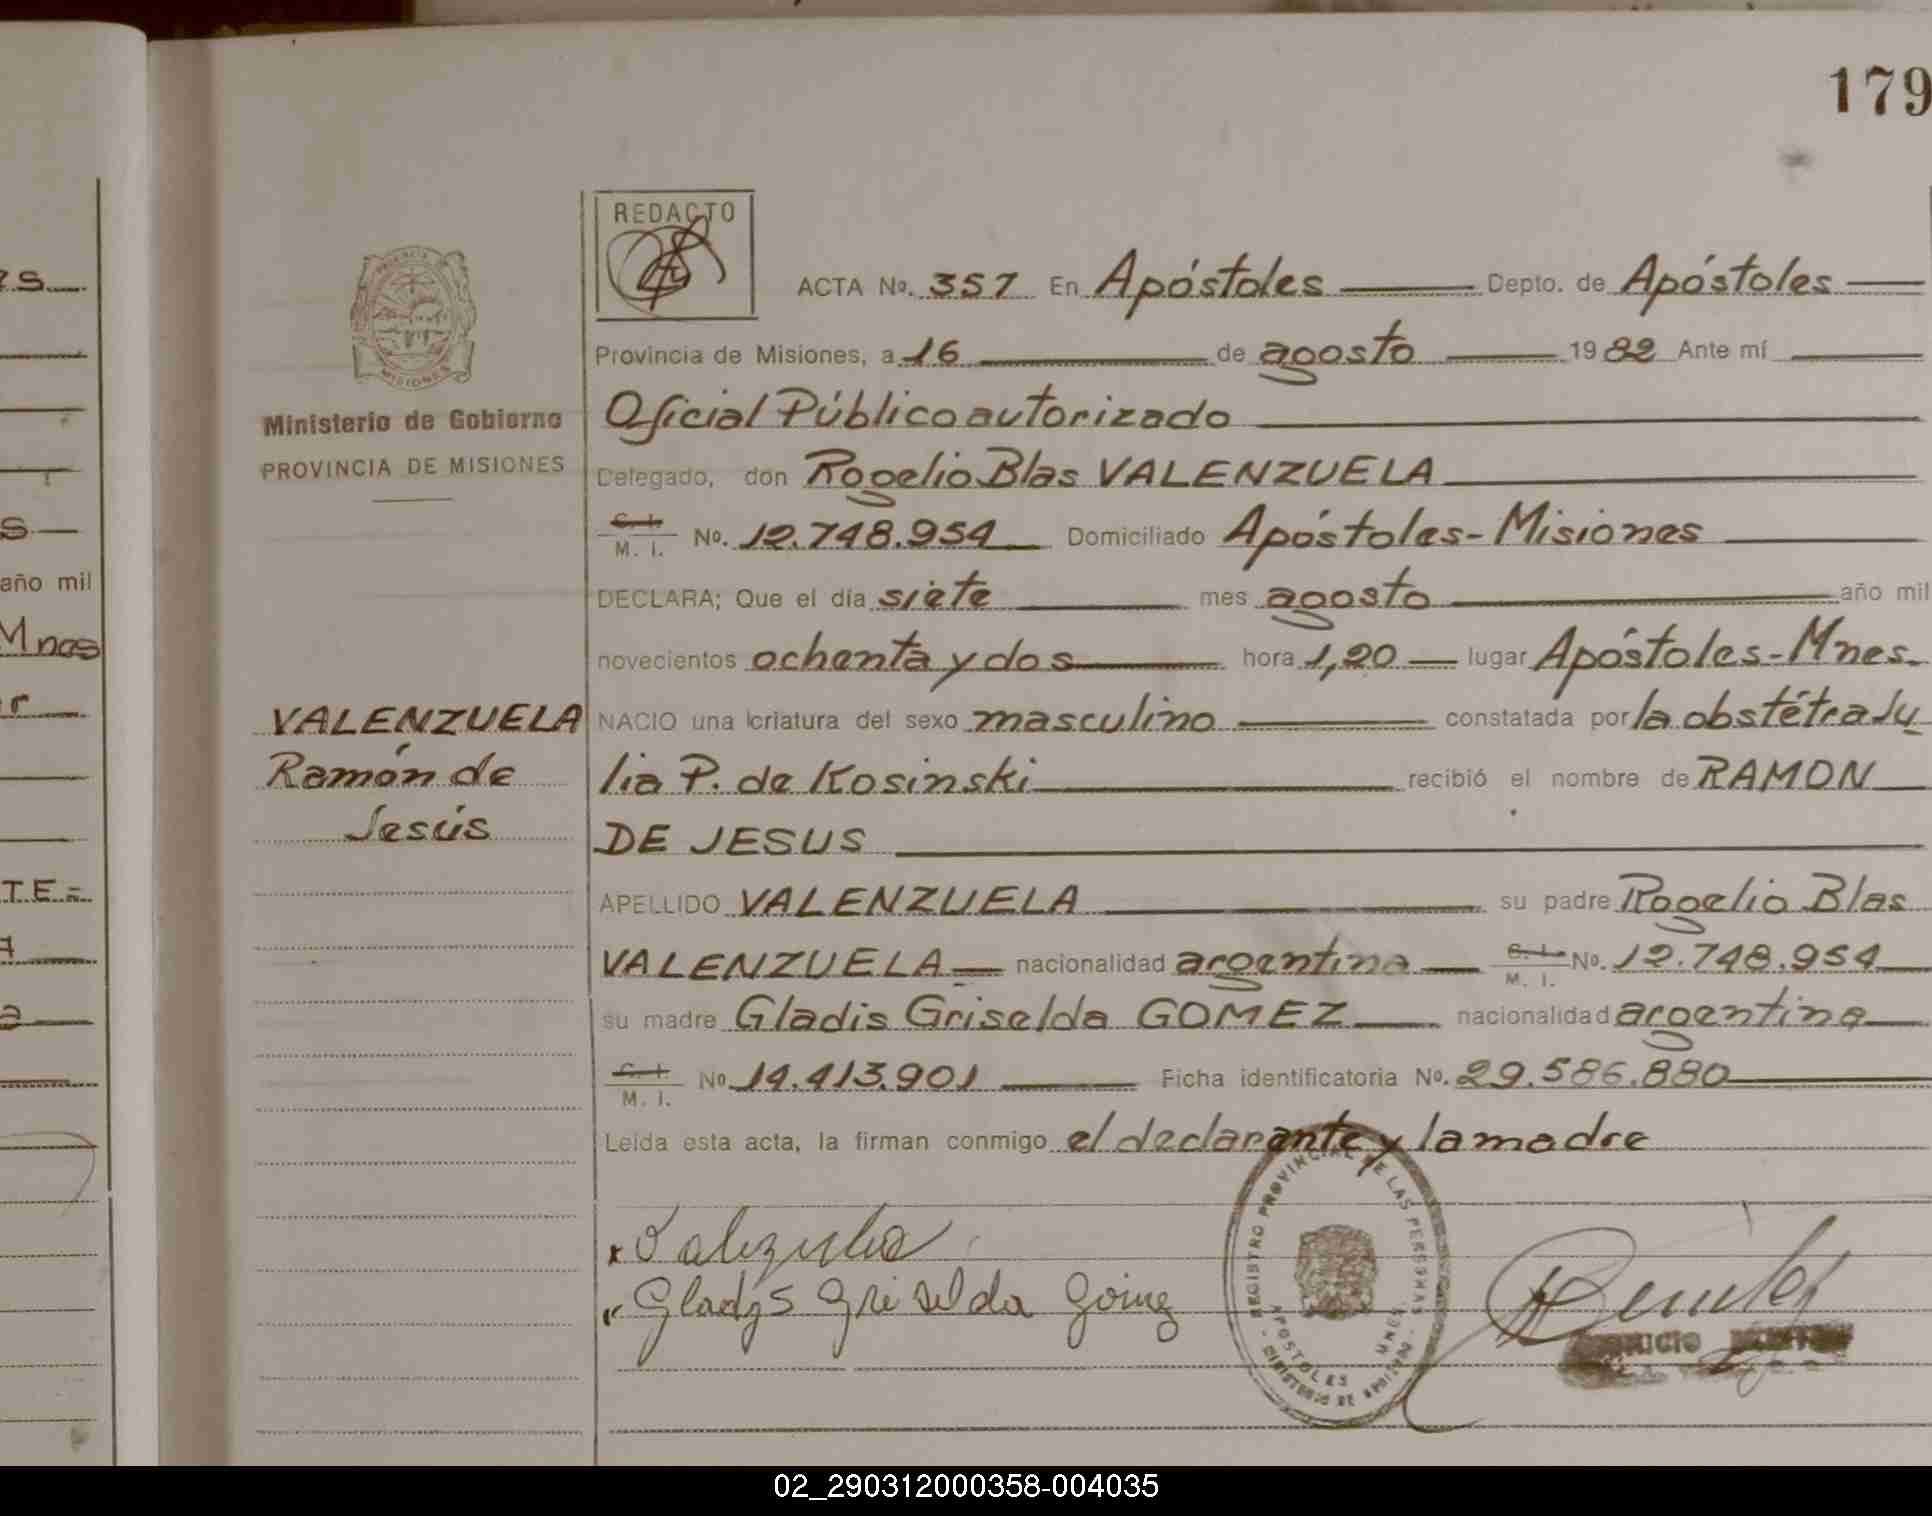 179
REDACTO
ACTA No. 357 En Apóstoles Depto. de Apóstoles
Provincia de Misiones, a 16 de agosto 1982 Ante mí
MISIONES
Ministerio de Gobierno
PROVINCIA DE MISIONES
Oficial Público autorizado
Delegado, don Rogelio Blas VALENZUELA
C. I.
M. I. No. 12.748.954 Domiciliado Apóstoles-Misiones
DECLARA; Que el día siete mes agosto año mil
novecientos ochenta y dos hora 1,20 lugar Apóstoles-Mnes.
VALENZUELA
Ramón de
Jesús
NACIO una criatura del sexo masculino constatada por la obstétra Ju
lia P. de Kosinski recibió el nombre de RAMON
DE JESUS
APELLIDO VALENZUELA su padre Rogelio Blas
VALENZUELA nacionalidad argentina C. I. No. 12.748.954
M. I.
su madre Gladis Griselda GOMEZ nacionalidad argentina
C. I.
M. I. No 14.413.901 Ficha identificatoria No. 29.586.880
Leída esta acta, la firman conmigo el declarante y la madre
Gladys Griselda Gómez
REGISTRO PROVINCIAL DE LAS PERSONAS
APOSTOLES MNES
año mil
Mnes
02_290312000358-004035